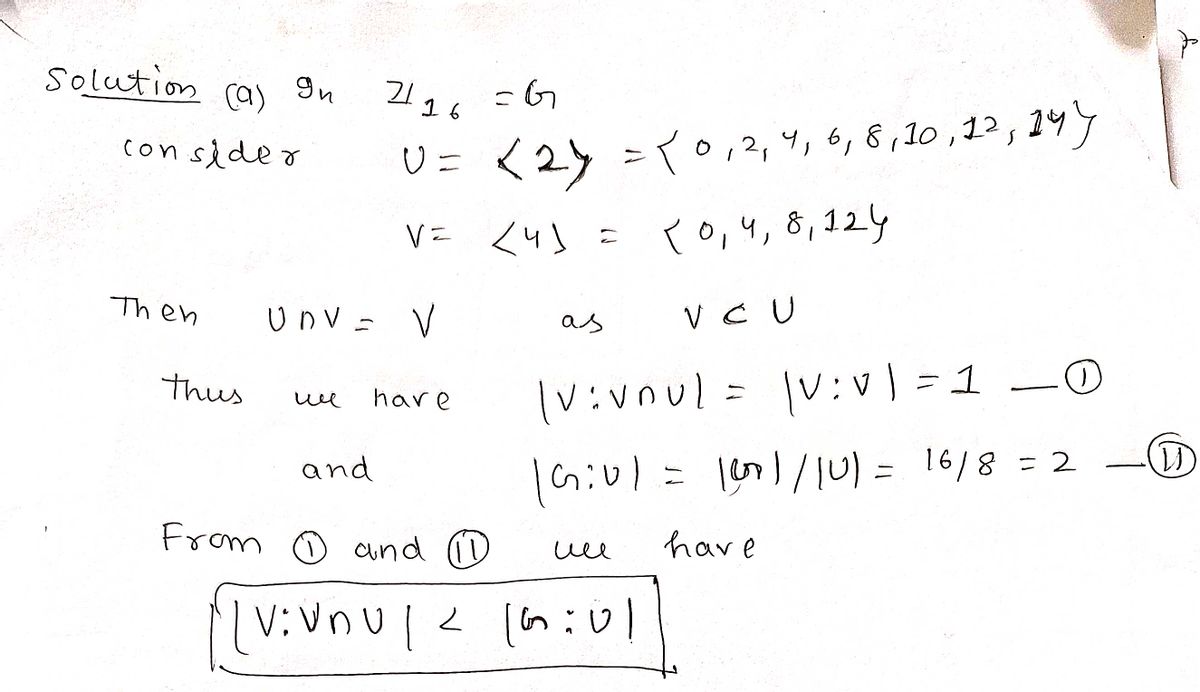 Solution (a) In ℤ₁₆ = G
consider U = <2> = {0, 2, 4, 6, 8, 10, 12, 14}
V = <4> = {0, 4, 8, 12}
Then U∩V = V as V ⊂ U
thus we have |V:V∩U| = |V:V| = 1 — (I)
and |G:U| = |G|/|U| = 16/8 = 2 — (II)
From (I) and (II) we have
|V:V∩U| < |G:U|